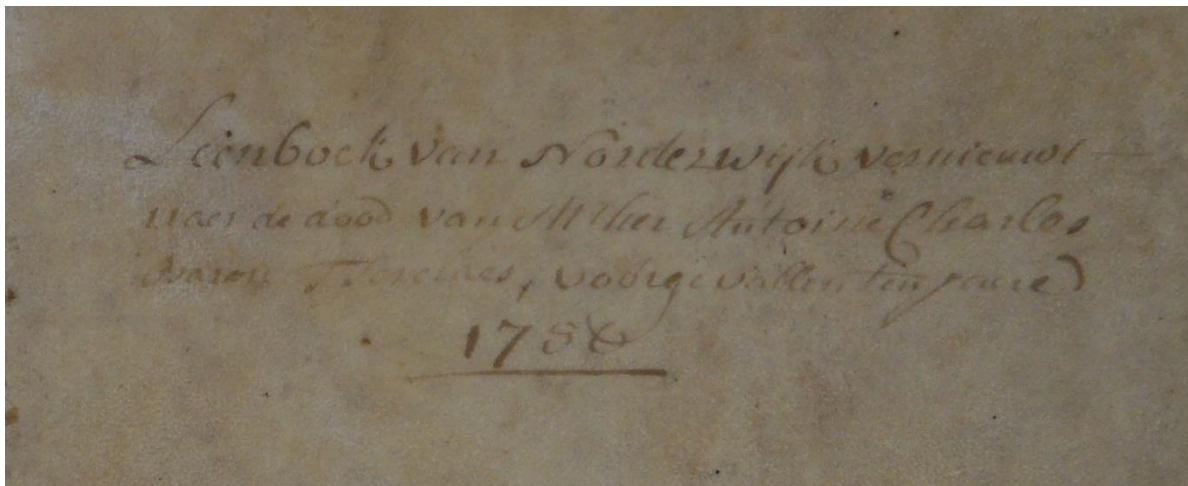 Leenboek van Norderwijk vernieuwt
naer de dood van Mher Antoine Charles
Baron T'Sereines, voorgevallen ten jaere
1756